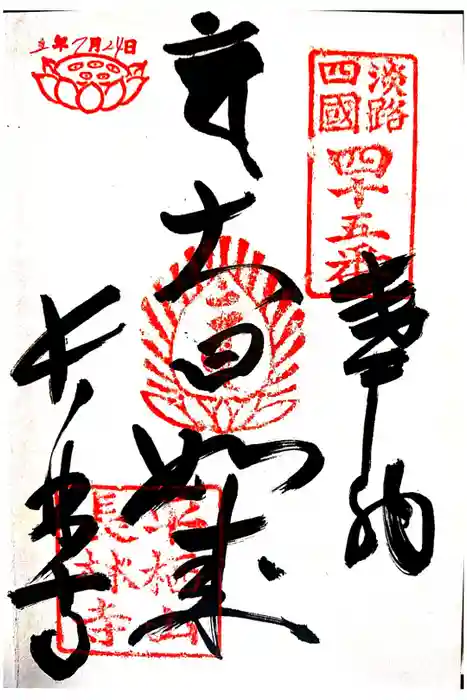 奉納
淡路
四國
四十五番
大日如来
長林寺
山
長林寺
五年7月24日